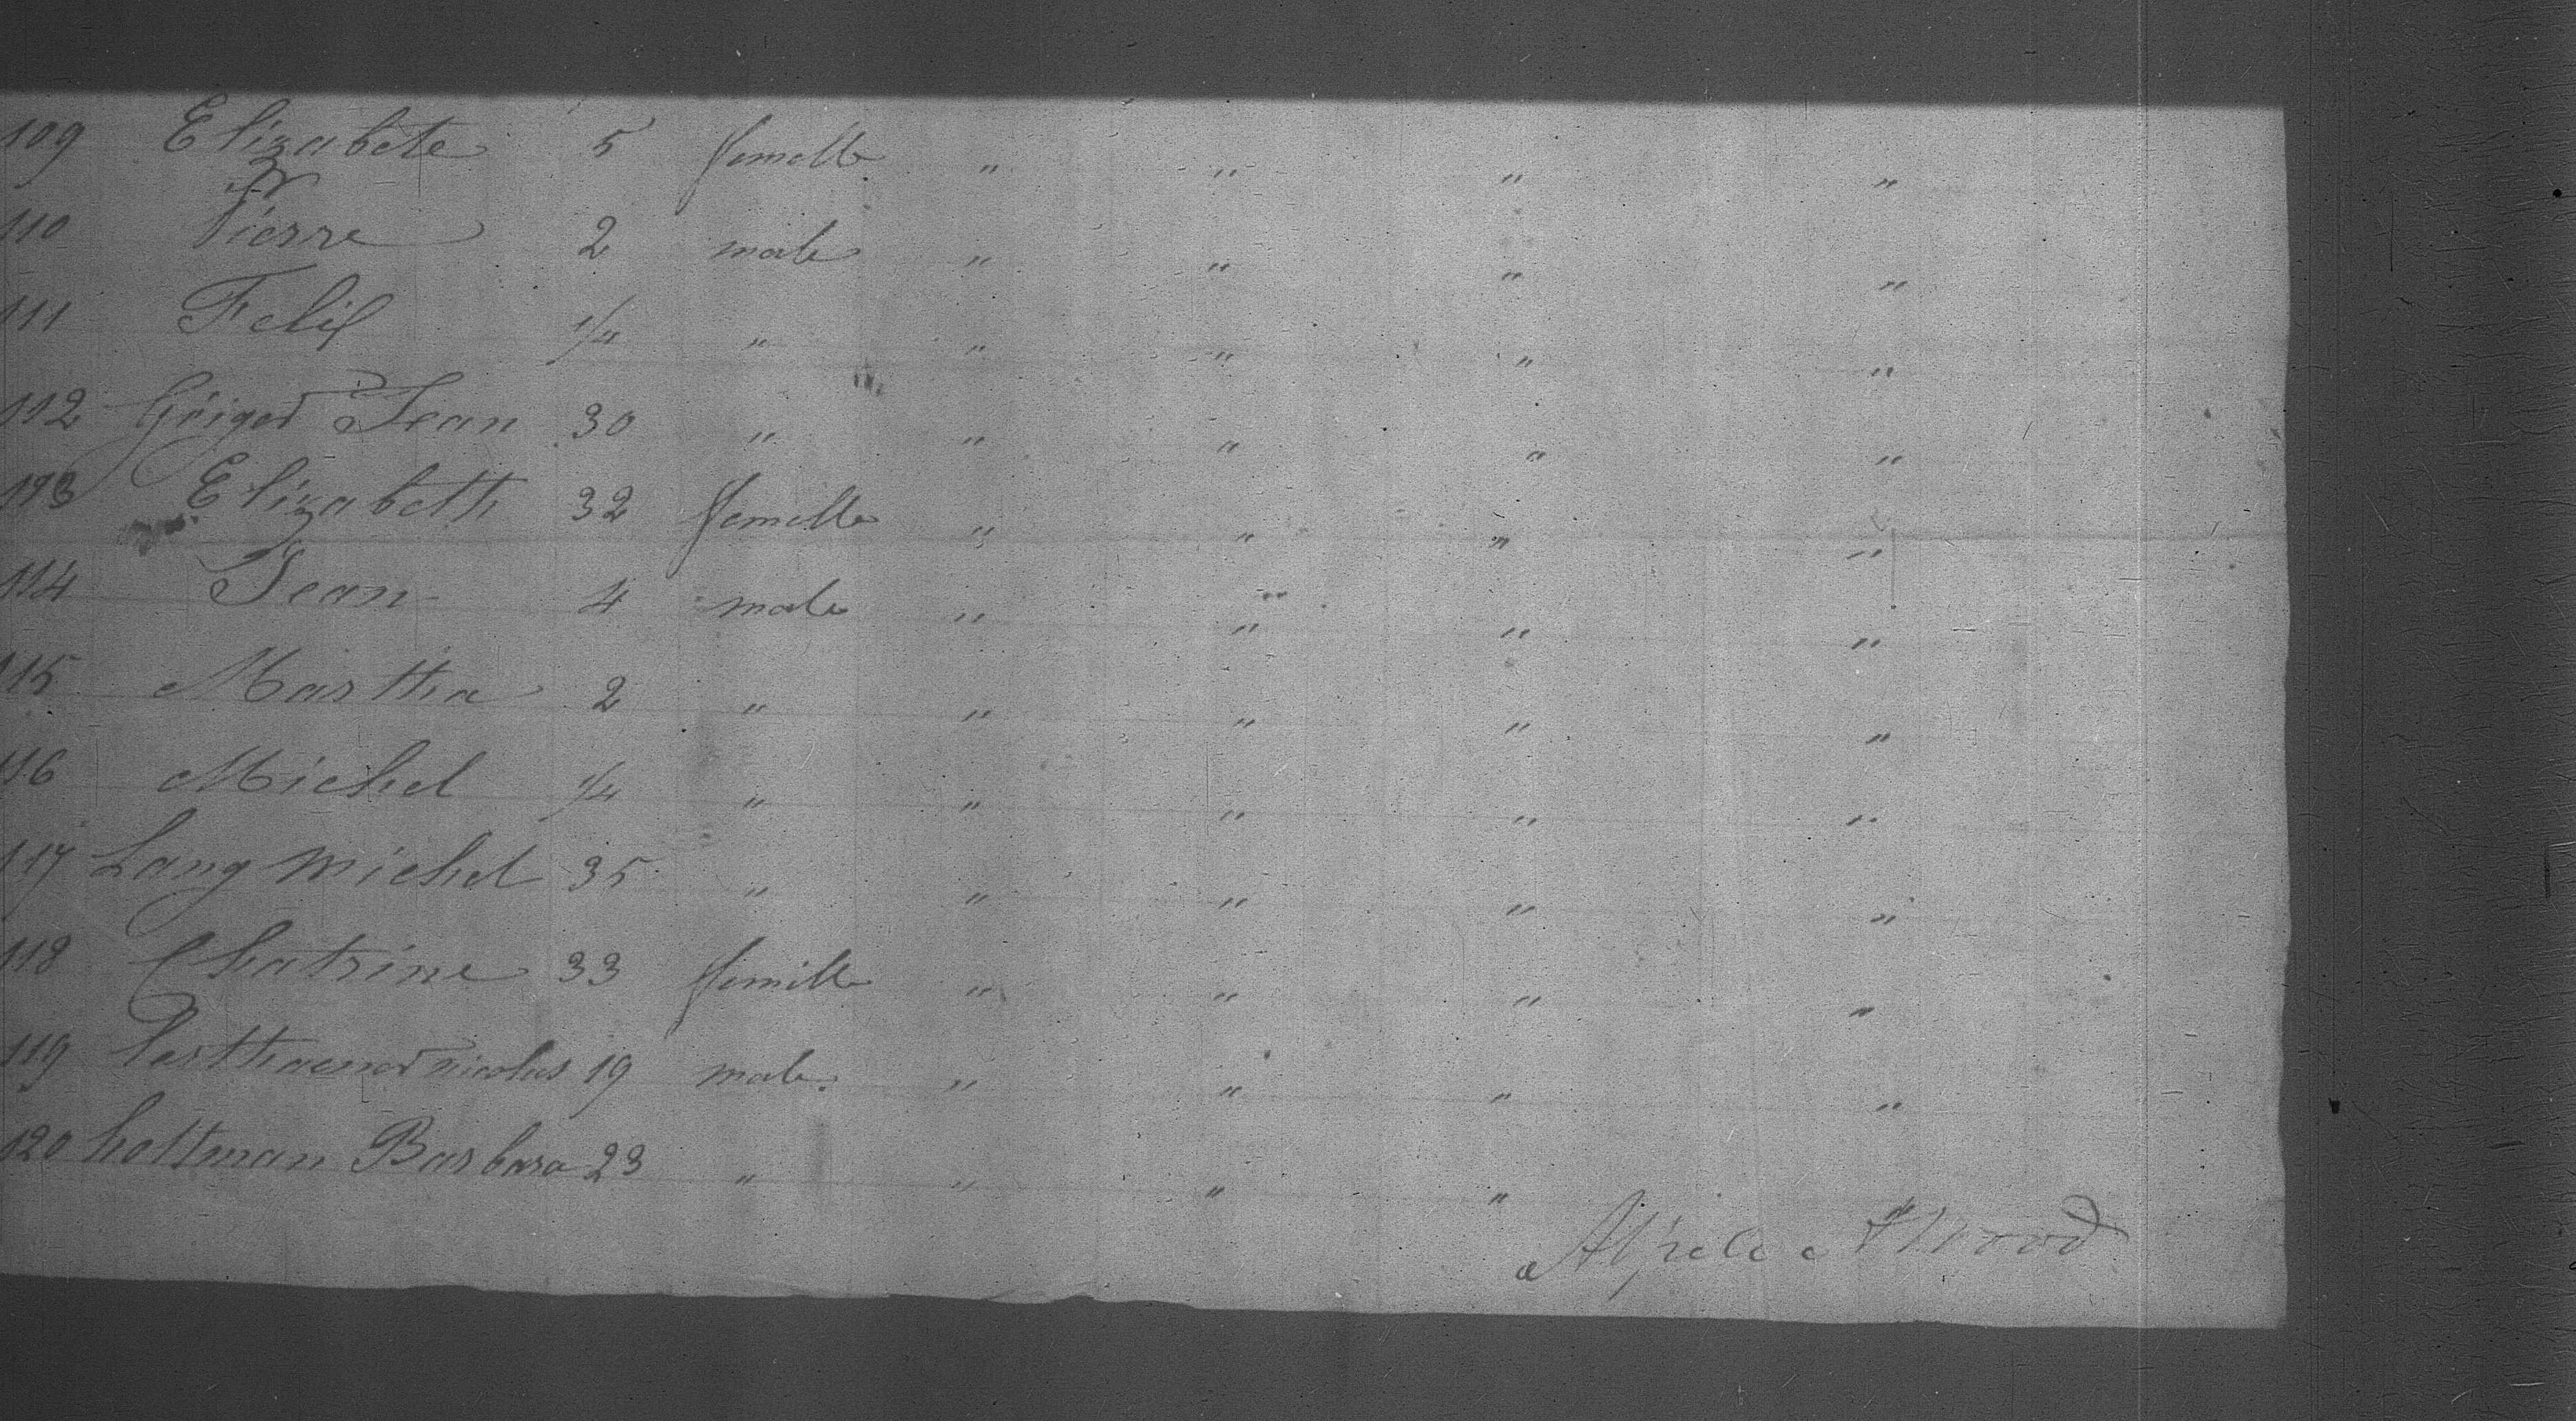 109 Elizabete 5 femelle " " " "
110 Pierre 2 male " " " "
111 Felix 1/4 " " " " "
112 Geiger Jean 30 " " " " "
113 Elizabeth 32 femelle " " " "
114 Jean 4 male " " " "
115 Martha 2 " " " " "
116 Michel 1/4 " " " " "
117 Lang Michel 35 " " " " "
118 Chatrine 33 femille " " " "
119 nicolas 19 male " " " "
120 holtman Barbara 23 " " " "
Wood